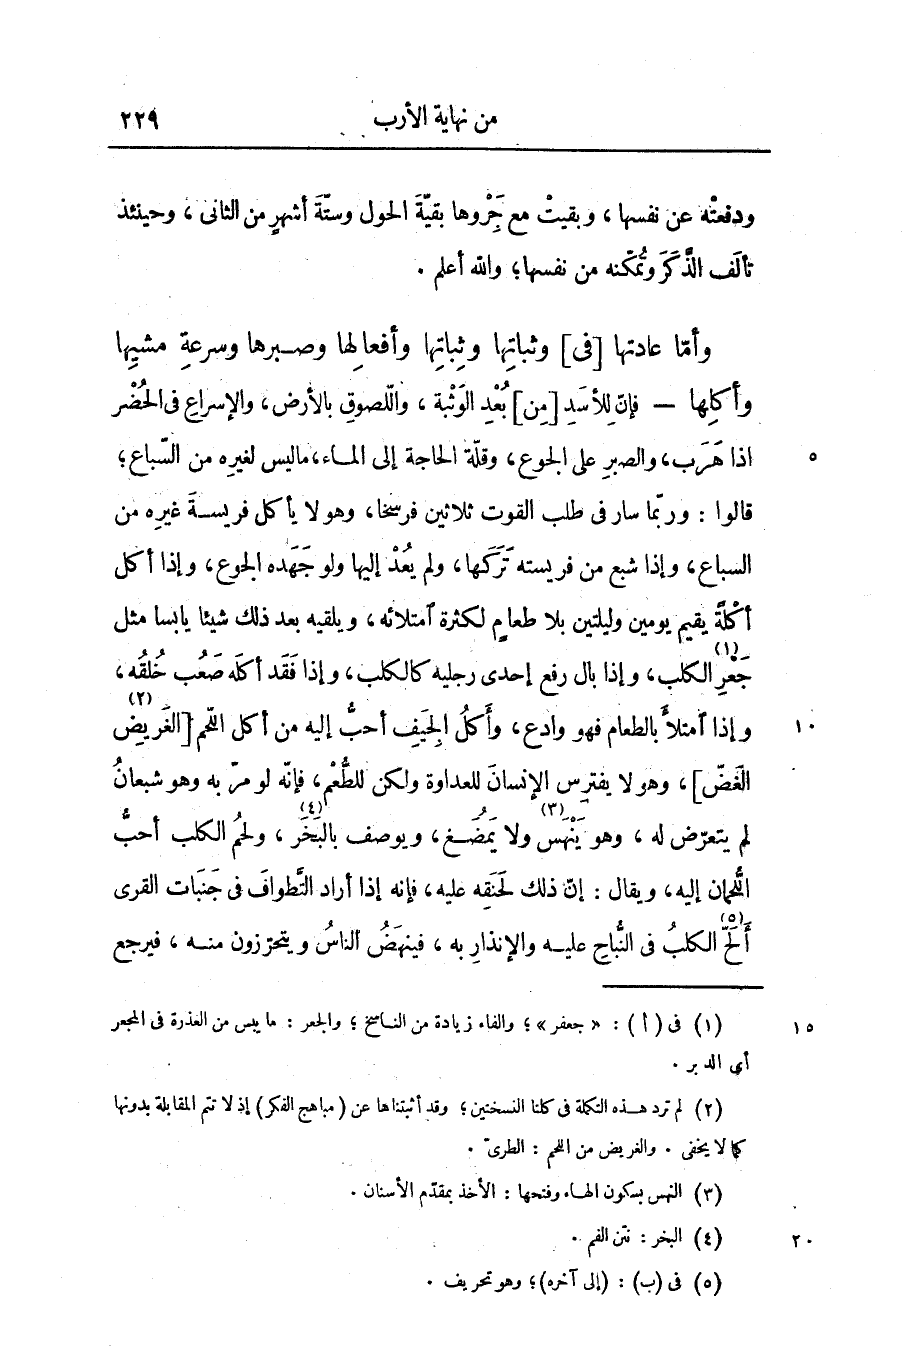 من نهاية الأرب ٢٢٩
ودفعتْه عن نفسها، وبقيتْ مع جَرْوها بقيّة الحول وستّةَ أشهرٍ من الثانى، وحينئذ
تألَف الذَّكَرَ وتُمكّنه من نفسها؛ والله أعلم .
وأمّا عادتها [فى] وثباتِها وثَباتِها وأفعالِها وصبرها وسرعةِ مشيِها
وأكلِها — فإنّ للأسَدِ [مِن] بُعْدِ الوَثْبة، واللّصوقِ بالأرض، والإسراعِ فى الحُضْر
٥ اذا هَرَب، والصبرِ على الجوع، وقلّة الحاجة إلى الماء، ماليس لغيرِه من السّباع؛
قالوا : وربّما سار فى طلب القوت ثلاثين فرسخا، وهو لا يأكل فريسةَ غيرِه من
السباع، وإذا شبع من فريسته تَرَكَها، ولم يَعُدْ إليها ولو جَهَده الجوع، وإذا أكل
أكْلةً يقيم يومين وليلتين بلا طعامٍ لكثرة آمتلائه، ويلقيه بعد ذلك شيئا يابسا مثل
جَعْرِ (١) الكلب، وإذا بال رفع إحدى رجليه كالكلب، وإذا فَقَد أكلَه صَعُب خُلقُه،
١٠ وإذا آمتلأ بالطعام فهو وادع، وأكلُ الجِيَفِ أحبُّ إليه من أكل اللّحم [الغَرِيضِ (٢)
الغَضّ]، وهو لا يفترس الإنسانَ للعداوة ولكن للطُّعْم، فإنّه لو مرّ به وهو شبعانُ
لم يتعرّض له، وهو يَنْهَس (٣) ولا يَمضُغ، ويوصف بالبَخَر (٤)، ولحمُ الكلب أحبُّ
اللُّحمان إليه، ويقال : إنّ ذلك لحَنَقِه عليه، فإنه إذا أراد التَّطوافَ فى جَنَبات القرى
أَلَحّ (٥) الكلبُ فى النُّباح عليه والإنذارِ به، فينهَضُ الناسُ ويتحرّزون منه، فيرجع
١٥ (١) فى (أ) : «جعفر»؛ والفاء زيادة من الناسخ؛ والجعر : ما يبس من العذرة فى المجعر
أي الدبر .
(٢) لم ترد هذه التكملة فى كلتا النسختين؛ وقد أثبتناها عن (مباهج الفكر) إذ لا تتم المقابلة بدونها
كما لا يخفى . والغريض من اللحم : الطرىّ .
(٣) النهس بسكون الهاء وفتحها : الأخذ بمقدّم الأسنان .
٢٠ (٤) البخر : نتن الفم .
(٥) فى (ب) : (إلى آخره)؛ وهو تحريف .